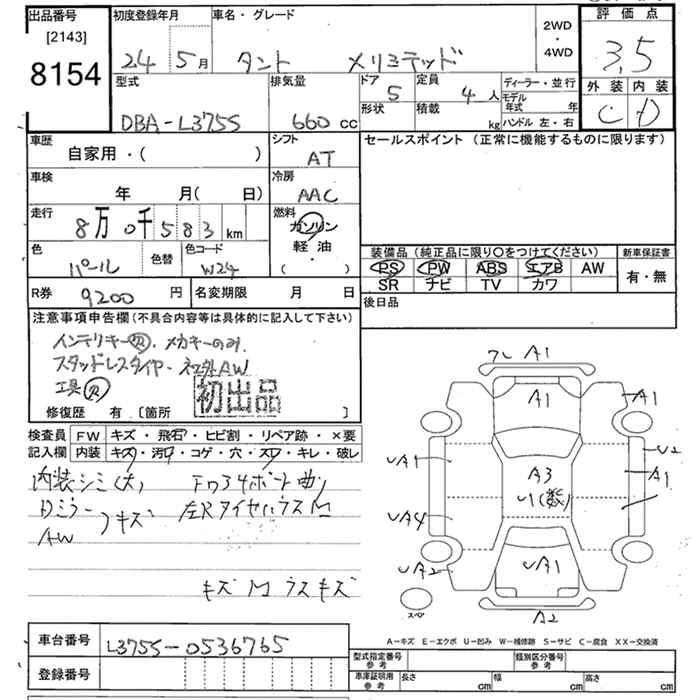 出品番号 初度登録年月 車名・グレード 2WD・4WD 評価点
[2143]
8154 24 5月 タント メリミテッド 3.5
型式 排気量 ドア 5 定員 4人 ディーラー・並行 外装 内装
DBA-L375S 660cc 形状 積載 kg モデル年式 年 ハンドル 左・右 C D
車歴 シフト セールスポイント (正常に機能するものに限ります)
自家用・( ) AT
車検 冷房
年 月( 日) AAC
走行 燃料
8万0千583km ガソリン
軽油
( )
色 色替 色コード 装備品 (純正品に限り○をつけてください) 新車保証書
パール W24 PS PW ABS エアB AW 有・無
SR ナビ TV カワ
R券 9200円 名変期限 月 日 後日品
注意事項申告欄 (不具合内容等は具体的に記入して下さい)
インテリキーR、メカキーのみ
スタッドレスタイヤ・社外AW
工具R 初出品
修復歴 有 [箇所 ]
検査員 FW キズ・飛石・ヒビ割・リペア跡・×要
記入欄 内装 キズ・汚れ・コゲ・穴・スレ・キレ・破レ
内装シミ(大)
Dミラー キズ 左Rタイヤハウス
AW
キズ
フレ A1
A1 A1
UA1 A3 U2
U1(数) A1
UA4 A1
UA2 UA1
スペア A2
A-キズ E-エクボ U-凹み W-補修跡 S-サビ C-腐食 XX-交換済
車台番号 L375S-0536765 型式指定番号 参考 類別区分番号 参考
登録番号 車庫証明用 参考 長さ cm 幅 cm 高さ cm